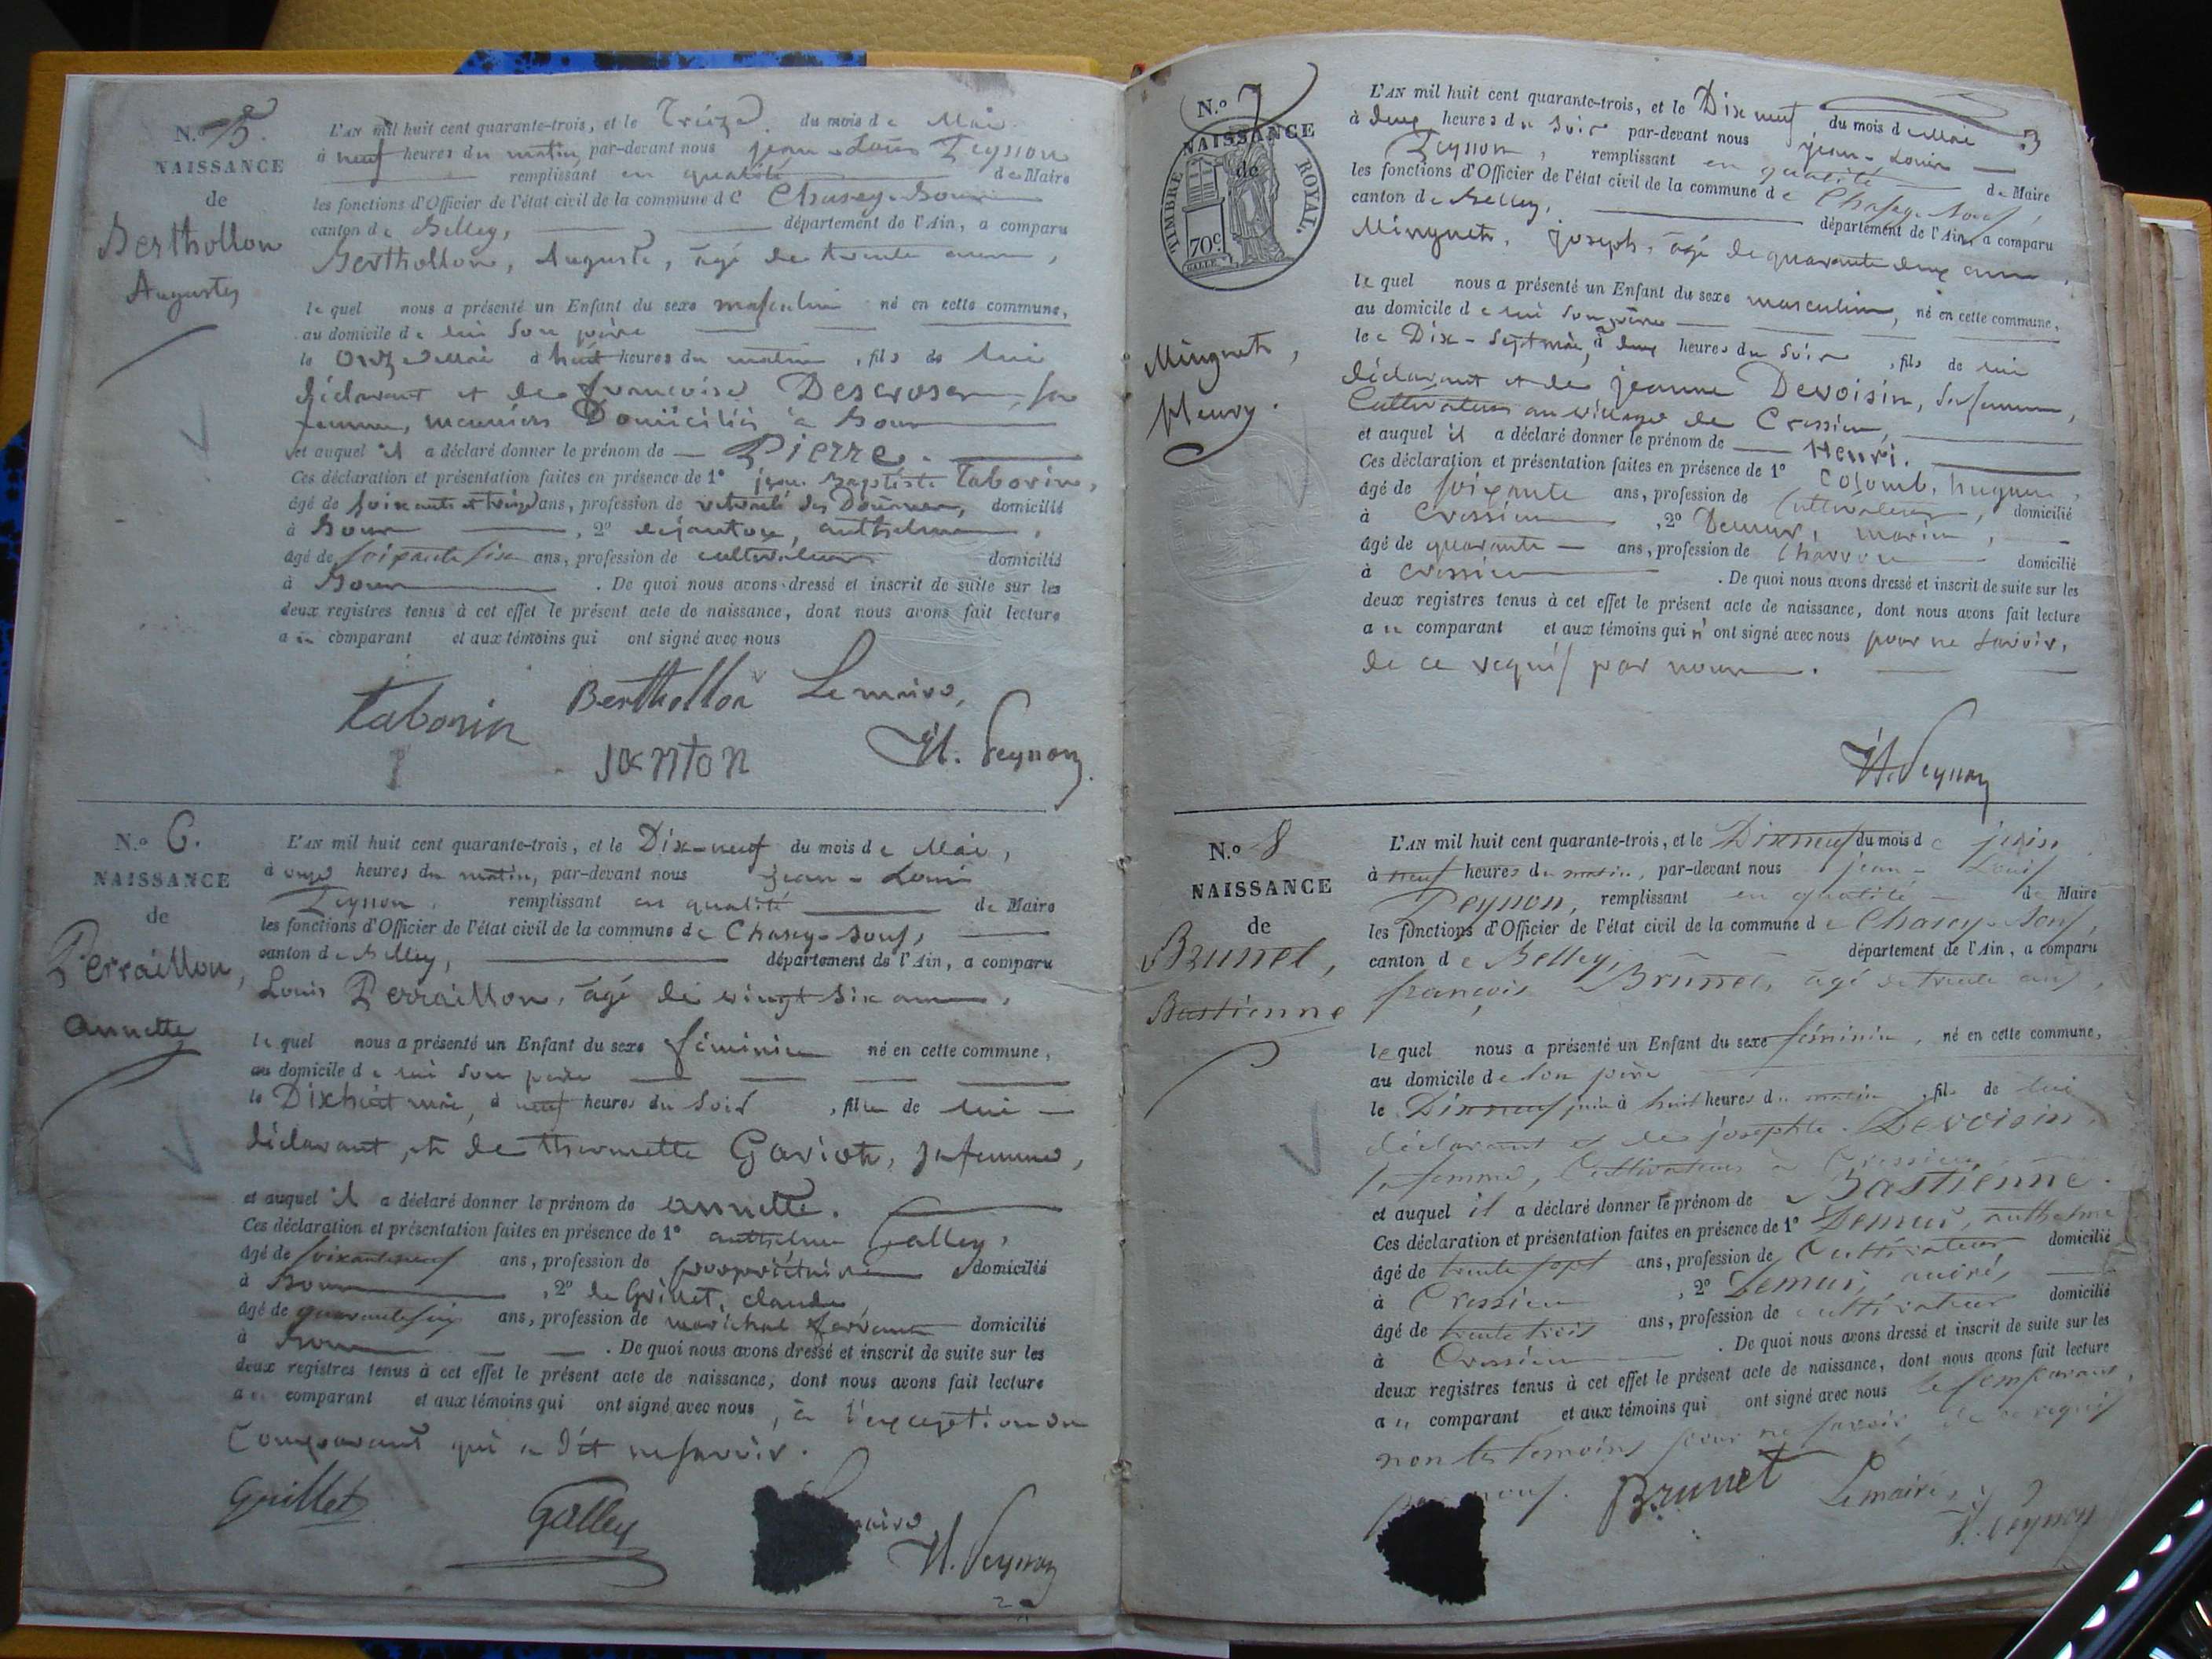 N.º 5.
NAISSANCE
de
Berthollon
Auguste
L'AN mil huit cent quarante-trois, et le Treize du mois de Mai
à neuf heures du matin, par-devant nous jean-Louis Peysson
remplissant en qualité de Maire
les fonctions d'Officier de l'état civil de la commune de Chasey-Bons
canton de Belley, département de l'Ain, a comparu
Berthollon, Auguste, âgé de trente ans,
lequel nous a présenté un Enfant du sexe masculin né en cette commune,
au domicile de lui son père
le onze Mai à huit heures du matin, fils de lui
déclarant et de francoise Descroses sa
femme, meuniers Domiciliés à Bons
et auquel il a déclaré donner le prénom de Pierre.
Ces déclaration et présentation faites en présence de 1º jean Baptiste Taborin,
âgé de soixante et treize ans, profession de retraité des Douanes, domicilié
à Bons, 2º dejanton, anthelme,
âgé de soixante six ans, profession de cultivateur domicilié
à Bons. De quoi nous avons dressé et inscrit de suite sur les
deux registres tenus à cet effet le présent acte de naissance, dont nous avons fait lecture
au comparant et aux témoins qui ont signé avec nous
Taborin Berthollon Le maire,
JANTON Peysson
N.º 6.
NAISSANCE
de
Perraillon,
annette
L'AN mil huit cent quarante-trois, et le Dix-neuf du mois de Mai,
à onze heures du matin, par-devant nous jean-Louis
Peysson, remplissant en qualité de Maire
les fonctions d'Officier de l'état civil de la commune de Chasey-Bons,
canton de Belley, département de l'Ain, a comparu
Louis Perraillon, âgé de vingt six ans,
lequel nous a présenté un Enfant du sexe féminin né en cette commune,
au domicile de lui son père
le Dixhuit mai, à neuf heures du soir, fille de lui
déclarant, et de thermette Gariot, sa femme,
et auquel il a déclaré donner le prénom de annette.
Ces déclaration et présentation faites en présence de 1º anthelme Galley,
âgé de ans, profession de propriétaire domicilié
à Bons, 2º de Grillet, claude,
âgé de ans, profession de maréchal ferrant domicilié
à Bons. De quoi nous avons dressé et inscrit de suite sur les
deux registres tenus à cet effet le présent acte de naissance, dont nous avons fait lecture
au comparant et aux témoins qui ont signé avec nous, à l'exception du
comparant qui a dit ne savoir.
Guillet Galley Peysson
N.º 7
NAISSANCE
de
TIMBRE ROYAL.
70c
Minguet,
fleury.
3
L'AN mil huit cent quarante-trois, et le Dix neuf du mois de Mai
à deux heures du soir par-devant nous jean-Louis
Peysson, remplissant en qualité de Maire
les fonctions d'Officier de l'état civil de la commune de Chasey-Bons,
canton de Belley, département de l'Ain, a comparu
Minguet, joseph, âgé de quarante deux ans,
lequel nous a présenté un Enfant du sexe masculin, né en cette commune,
au domicile de lui son père
le Dix-sept mai, à deux heures du soir, fils de lui
déclarant et de jeanne Devoisin, sa femme,
Cultivateurs au village de Cressieu,
et auquel il a déclaré donner le prénom de Henri.
Ces déclaration et présentation faites en présence de 1º Colomb, hugues,
âgé de soixante ans, profession de Cultivateur, domicilié
à Cressieu, 2º Demur, marin,
âgé de quarante ans, profession de Charron domicilié
à Cressieu. De quoi nous avons dressé et inscrit de suite sur les
deux registres tenus à cet effet le présent acte de naissance, dont nous avons fait lecture
au comparant et aux témoins qui n'ont signé avec nous pour ne savoir,
de ce requis par nous.
Peysson
N.º 8
NAISSANCE
de
Brunet,
Bastienne
L'AN mil huit cent quarante-trois, et le Dixneuf du mois de juin
à neuf heures du matin, par-devant nous jean-Louis
Peysson, remplissant en qualité de Maire
les fonctions d'Officier de l'état civil de la commune de Chasey-Bons,
canton de Belley, département de l'Ain, a comparu
françois Brunet, âgé de trente ans,
lequel nous a présenté un Enfant du sexe féminin, né en cette commune,
au domicile de son père
le Dixneuf juin à huit heures du matin, fils de lui
déclarant et de josephte Devoisin,
sa femme, Cultivateurs à Cressieu
et auquel il a déclaré donner le prénom de Bastienne.
Ces déclaration et présentation faites en présence de 1º Demur, anthelme
âgé de trente sept ans, profession de Cultivateur, domicilié
à Cressieu, 2º Demur, andré,
âgé de trente trois ans, profession de cultivateur domicilié
à Cressieu. De quoi nous avons dressé et inscrit de suite sur les
deux registres tenus à cet effet le présent acte de naissance, dont nous avons fait lecture
au comparant et aux témoins qui ont signé avec nous le comparant,
non les témoins pour ne savoir, de ce requis
par nous. Brunet Le maire,
Peysson